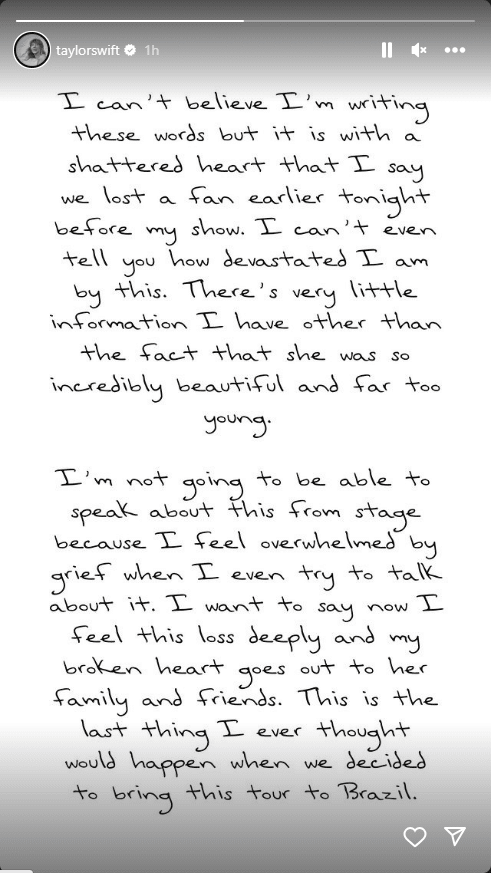 taylorswift 1h
I can't believe I'm writing
these words but it is with a
shattered heart that I say
we lost a fan earlier tonight
before my show. I can't even
tell you how devastated I am
by this. There's very little
information I have other than
the fact that she was so
incredibly beautiful and far too
young.
I'm not going to be able to
speak about this from stage
because I feel overwhelmed by
grief when I even try to talk
about it. I want to say now I
feel this loss deeply and my
broken heart goes out to her
family and friends. This is the
last thing I ever thought
would happen when we decided
to bring this tour to Brazil.